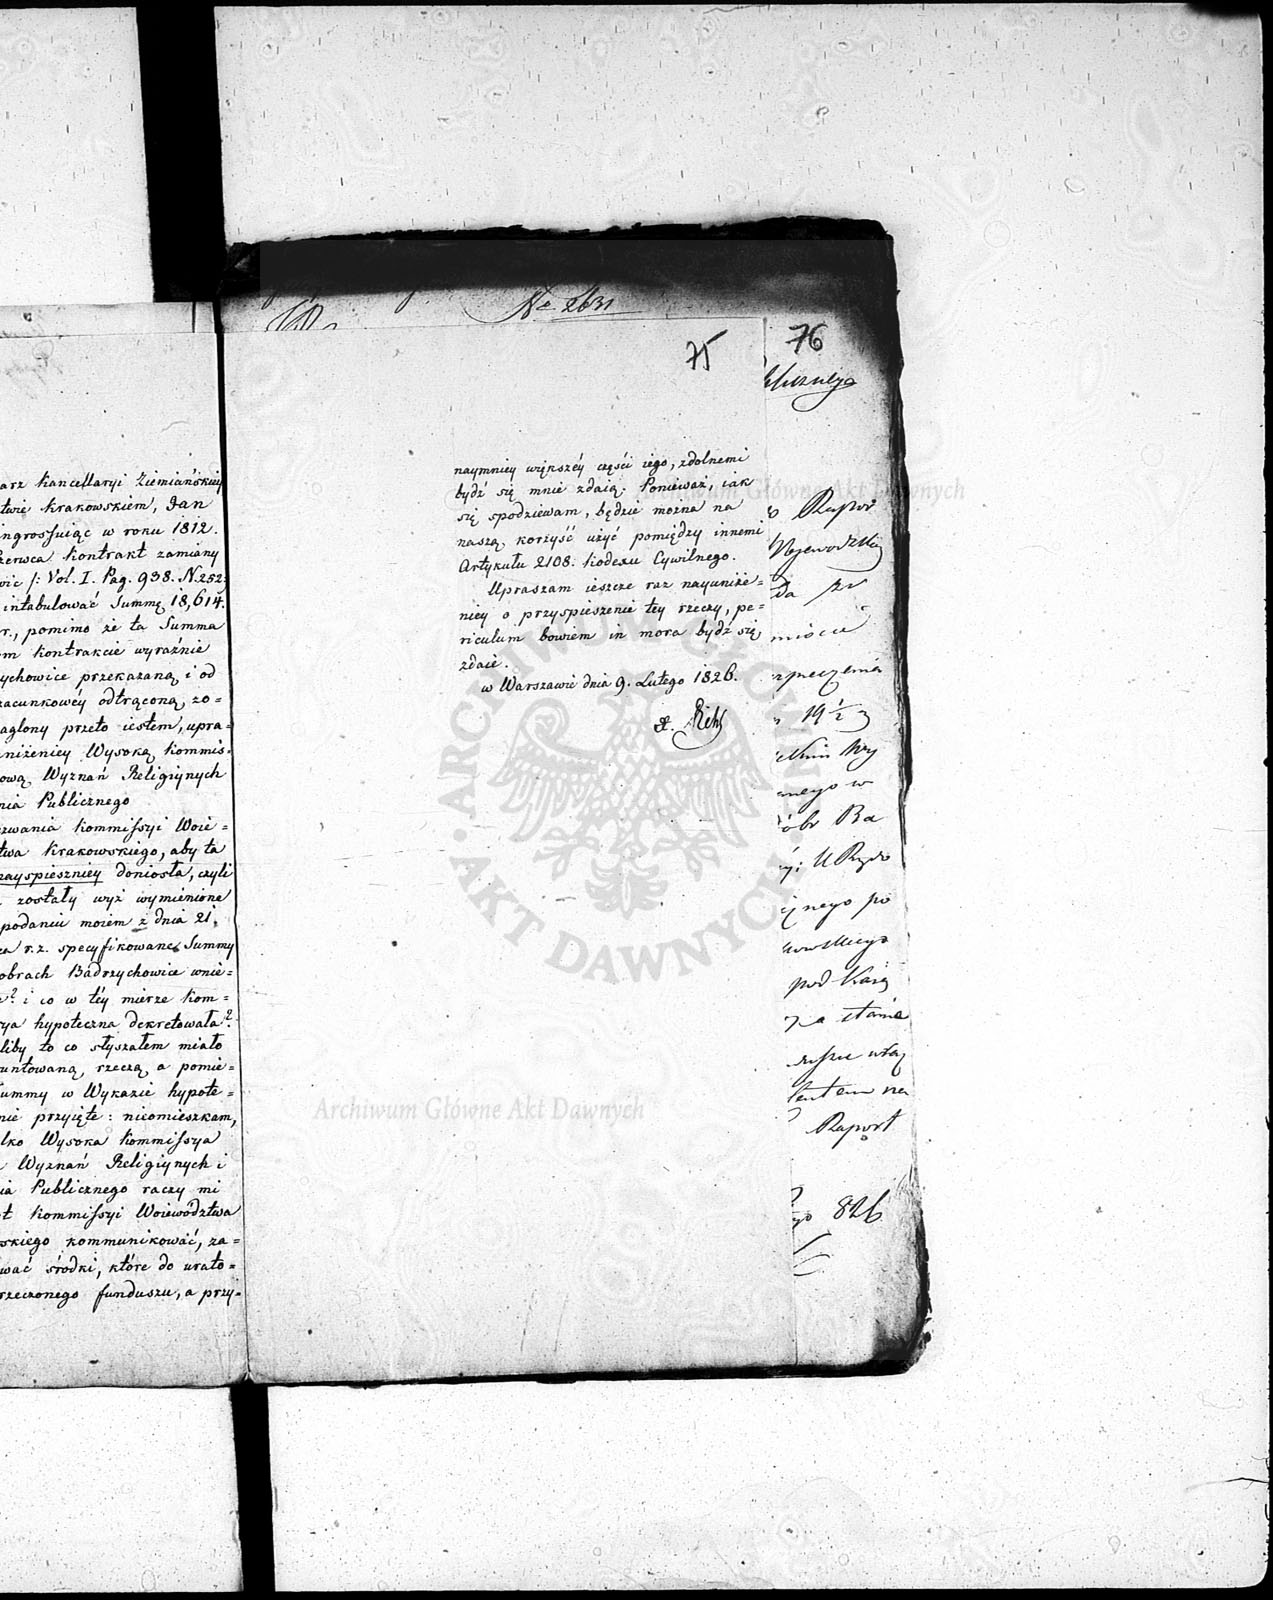 arz Kancellaryi Ziemiańskiey
twie Krakowskiem, Jan
ingrossuiąc w roku 1812.
zerwca Kontrakt zamiany
wic /: Vol. I. Pag. 938. N. 252:
intabulować Summę 18,614.
r., pomimo że ta Summa
m Kontrakcie wyraźnie
ychowice przekazaną i od
zacunkowéy odtrąconą zo=
aglony przeto iestem, upra=
niżeniey Wysoką Kommis=
ową Wyznań Religiynych
nia Publicznego
zwania Kommissyi Woie=
twa Krakowskiego, aby ta
nayspieszniey doniosła, czyli
zostały wyż wymienione
podaniu moiem z dnia 21.
ca r. z. specyfikowane Summy
obrach Badrzychowice wnie=
? i co w téy mierze Kom=
ya hypoteczna dekretowała?
liby to co słyszałem miało
untowaną, rzeczą a pomie=
ummy w Wykazie hypote=
nie przyięte: nieomieszkam,
lko Wysoka Kommissya
Wyznań Religiynych i
ia Publicznego raczy mi
t Kommissyi Woiewództwa
skiego kommunikować, za=
wać środki, które do urato=
rzeczonego funduszu, a przy=
No 2631
75
naymniey większéy części iego, zdolnemi
bydź się mnie zdaią. Ponieważ, iak
się spodziewam, będzie można na
naszą korzyść użyć pomiędzy innemi
Artykułu 2108. Kodexu Cywilnego.
Upraszam ieszcze raz nayuniże=
niey o przyspieszenie tey rzeczy, pe=
riculum bowiem in mora bydź się
zdaie.
w Warszawie dnia 9. Lutego 1826.
76
Raport
Wojewodzkiey
da
mieście
zpieczenia
19 1/2
nego w
óbr Ba
ynego po
kowskiego
pod
stanie
na
Raport
826
Archiwum Główne Akt Dawnych
Archiwum Główne Akt Dawnych
ARCHIWUM GŁÓWNE AKT DAWNYCH